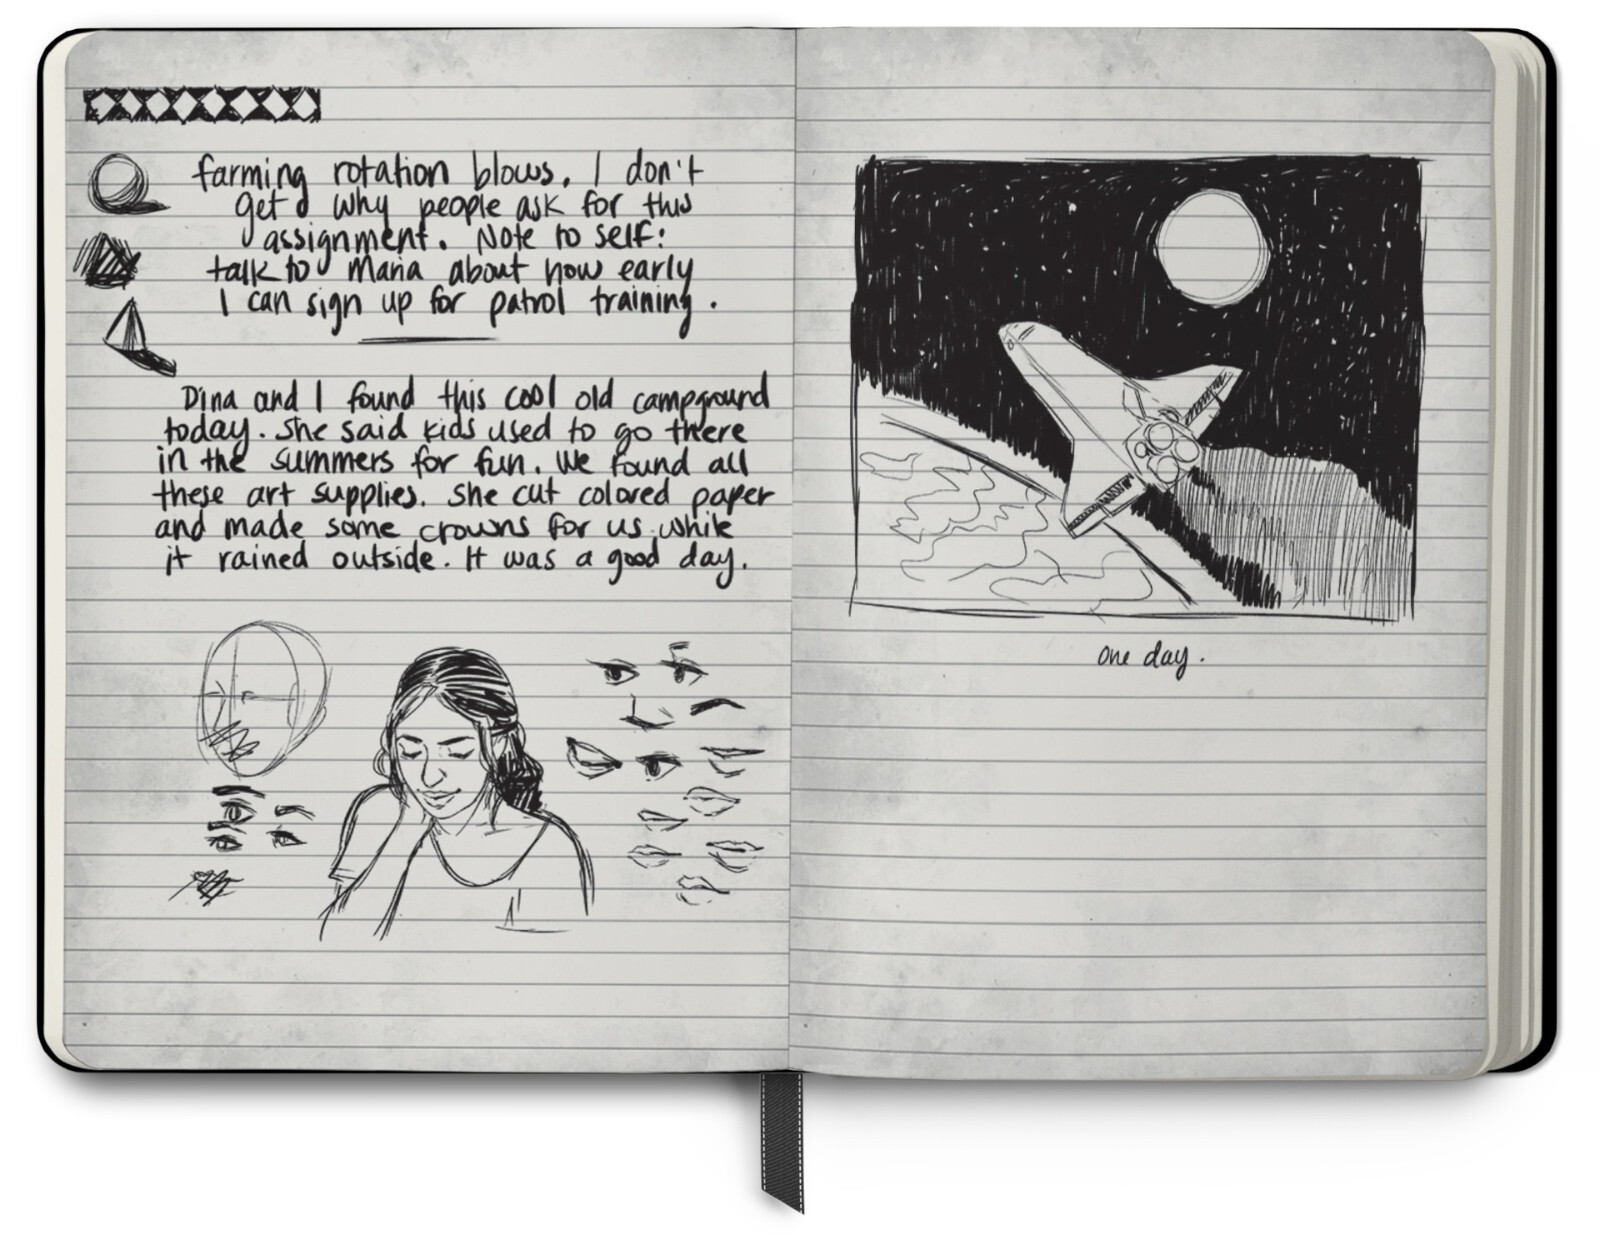 farming rotation blows. I don't
get why people ask for this
assignment. Note to self:
talk to Maria about how early
I can sign up for patrol training.
Dina and I found this cool old campground
today. She said kids used to go there
in the summers for fun. We found all
these art supplies. She cut colored paper
and made some crowns for us while
it rained outside. It was a good day.
one day.